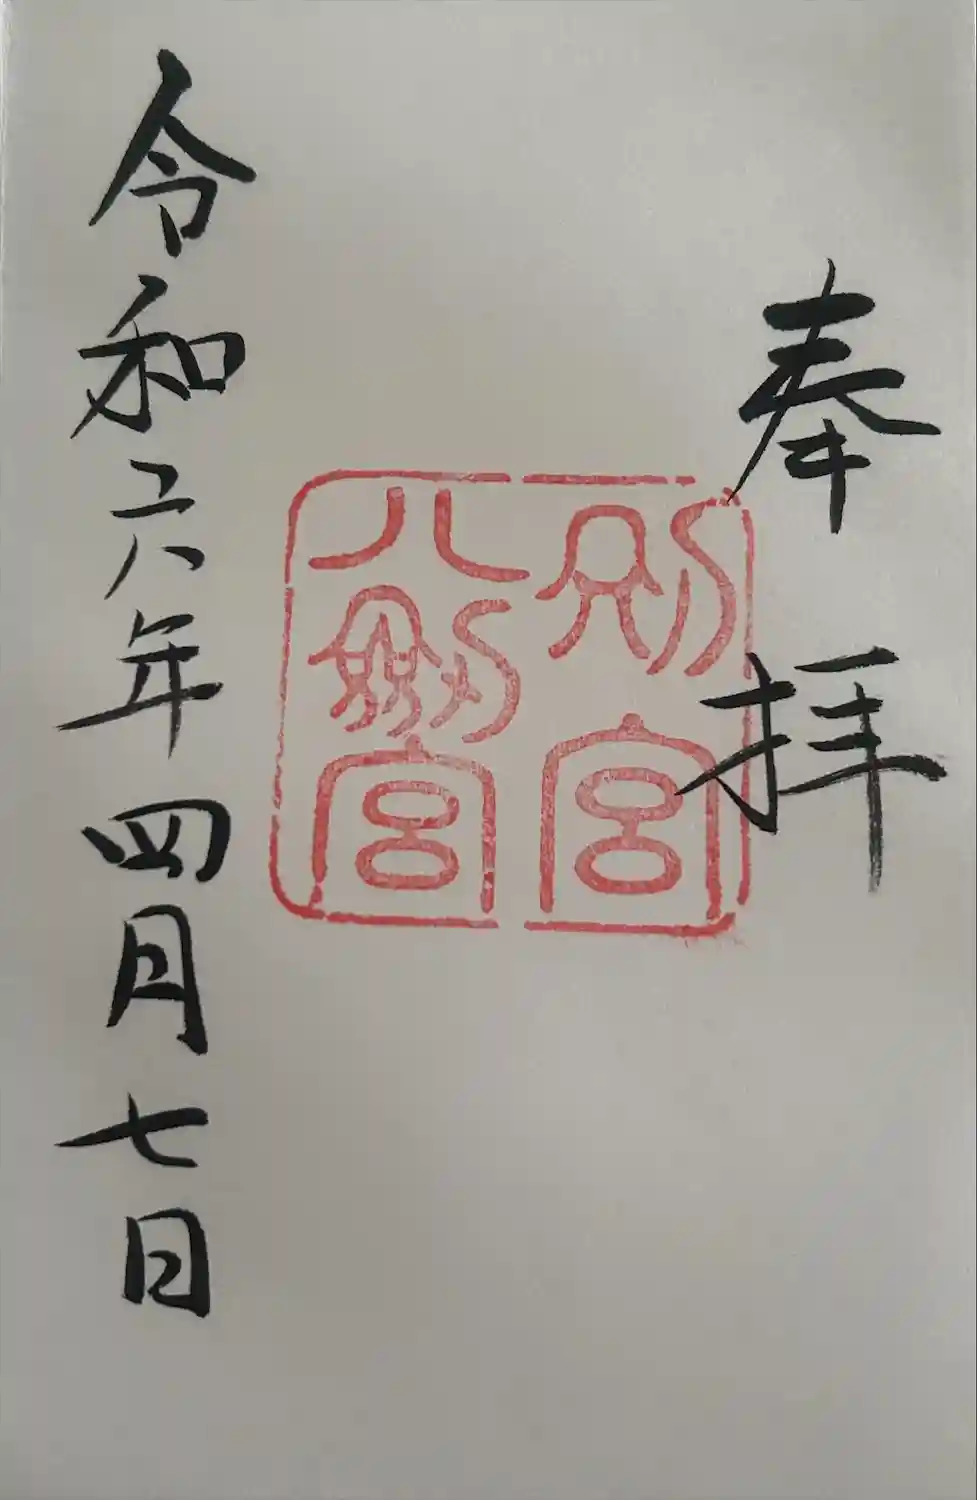 奉拝
別宮
八剣宮
令和六年四月七日